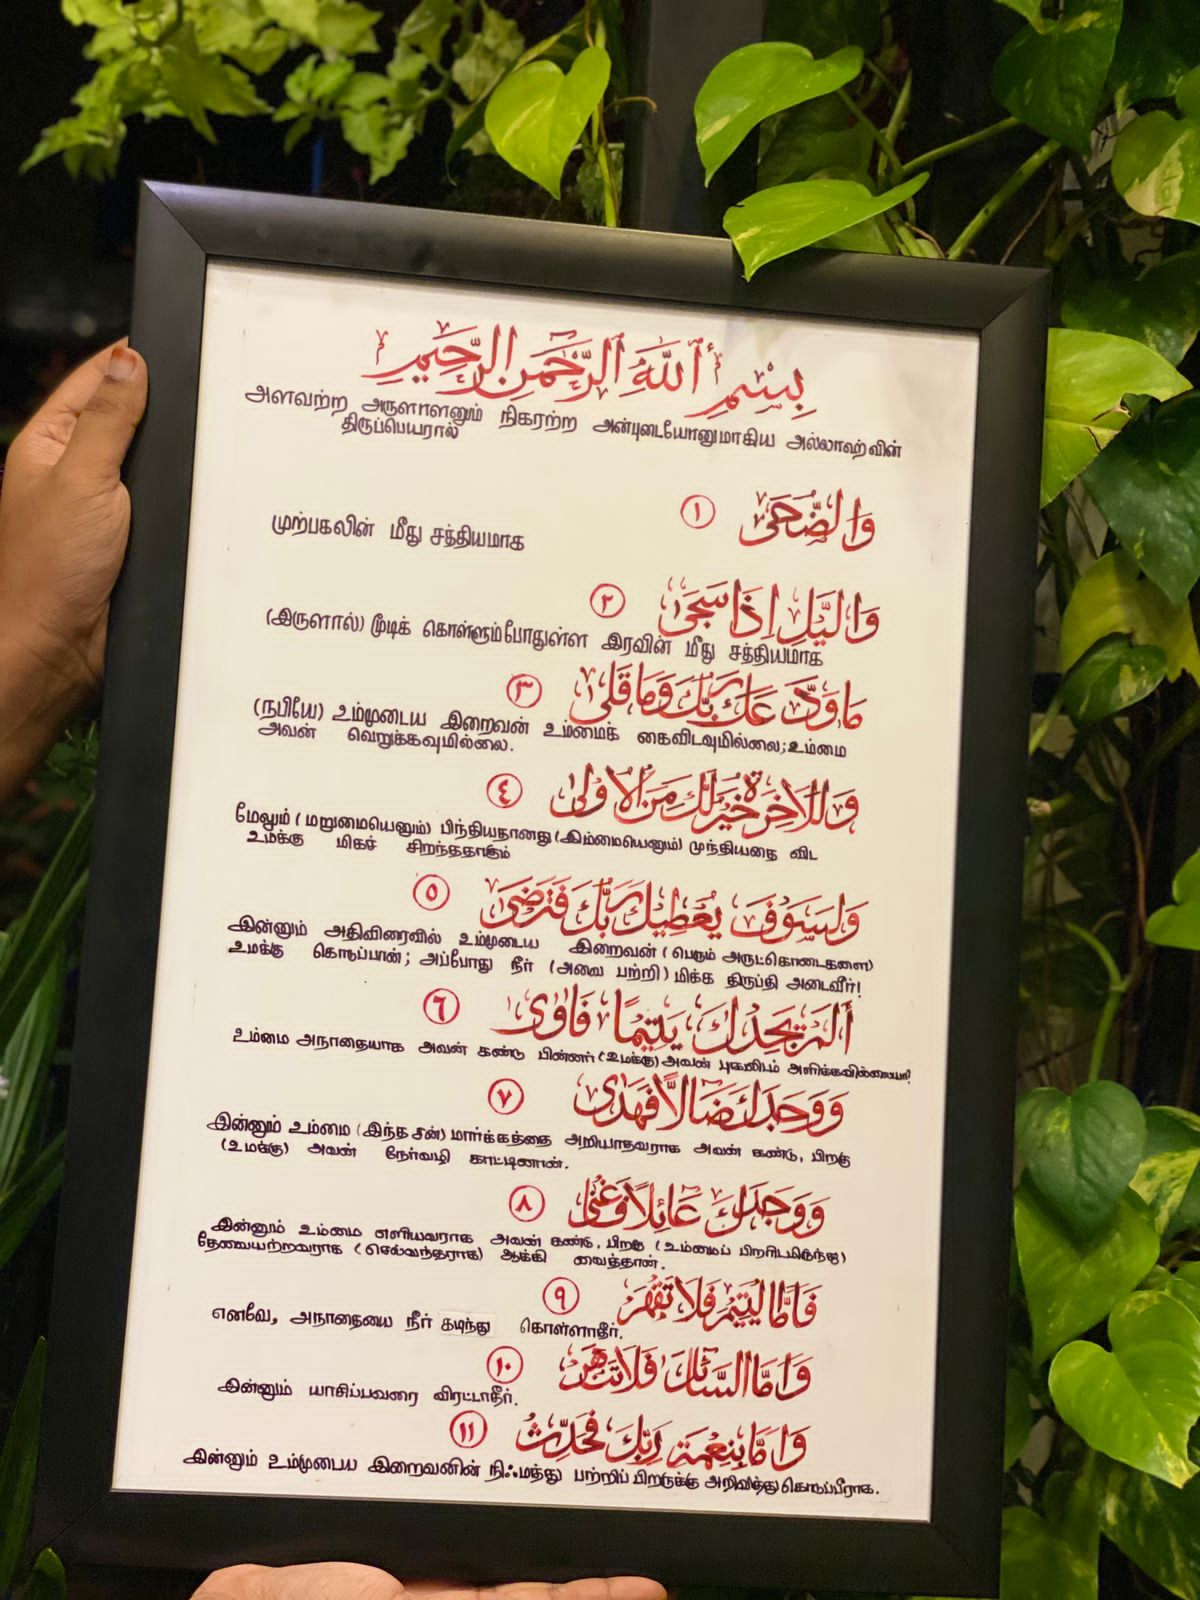 بِسْمِ ٱللَّهِ ٱلرَّحْمَٰنِ ٱلرَّحِيمِ
அளவற்ற அருளாளனும் நிகரற்ற அன்புடையோனுமாகிய அல்லாஹ்வின்
திருப்பெயரால்
وَالضُّحَىٰ ١
முற்பகலின் மீது சத்தியமாக
وَالَّيْلِ إِذَا سَجَىٰ ٢
(இருளால்) மூடிக் கொள்ளும்போதுள்ள இரவின் மீது சத்தியமாக
مَا وَدَّعَكَ رَبُّكَ وَمَا قَلَىٰ ٣
(நபியே) உம்முடைய இறைவன் உம்மைக் கைவிடவுமில்லை; உம்மை
அவன் வெறுக்கவுமில்லை.
وَلَلْآخِرَةُ خَيْرٌ لَّكَ مِنَ الْأُولَىٰ ٤
மேலும் (மறுமையெனும்) பிந்தியதானது (இம்மையெனும்) முந்தியதை விட
உமக்கு மிகச் சிறந்ததாகும்
وَلَسَوْفَ يُعْطِيكَ رَبُّكَ فَتَرْضَىٰ ٥
இன்னும் அதிவிரைவில் உம்முடைய இறைவன் (பெரும் அருட்கொடைகளை)
உமக்கு கொடுப்பான்; அப்போது நீர் (அவை பற்றி) மிக்க திருப்தி அடைவீர்!
أَلَمْ يَجِدْكَ يَتِيمًا فَآوَىٰ ٦
உம்மை அநாதையாக அவன் கண்டு பின்னர் (உமக்கு) அவன் புகலிடம் அளிக்கவில்லையா?
وَوَجَدَكَ ضَالًّا فَهَدَىٰ ٧
இன்னும் உம்மை (இந்த சன்) மார்க்கத்தை அறியாதவராக அவன் கண்டு, பிறகு
(உமக்கு) அவன் நேர்வழி காட்டினான்.
وَوَجَدَكَ عَائِلًا فَأَغْنَىٰ ٨
இன்னும் உம்மை எளியவராக அவன் கண்டு, பிறகு (உம்மைப் பிறரிடமிருந்து)
தேவையற்றவராக (செல்வந்தராக) ஆக்கி வைத்தான்.
فَأَمَّا الْيَتِيمَ فَلَا تَقْهَرْ ٩
எனவே, அநாதையை நீர் கடிந்து கொள்ளாதீர்.
وَأَمَّا السَّائِلَ فَلَا تَنْهَرْ ١٠
இன்னும் யாசிப்பவரை விரட்டாதீர்.
وَأَمَّا بِنِعْمَةِ رَبِّكَ فَحَدِّثْ ١١
இன்னும் உம்முடைய இறைவனின் நிஃமத்து பற்றிப் பிறருக்கு அறிவித்து கொடுப்பீராக.